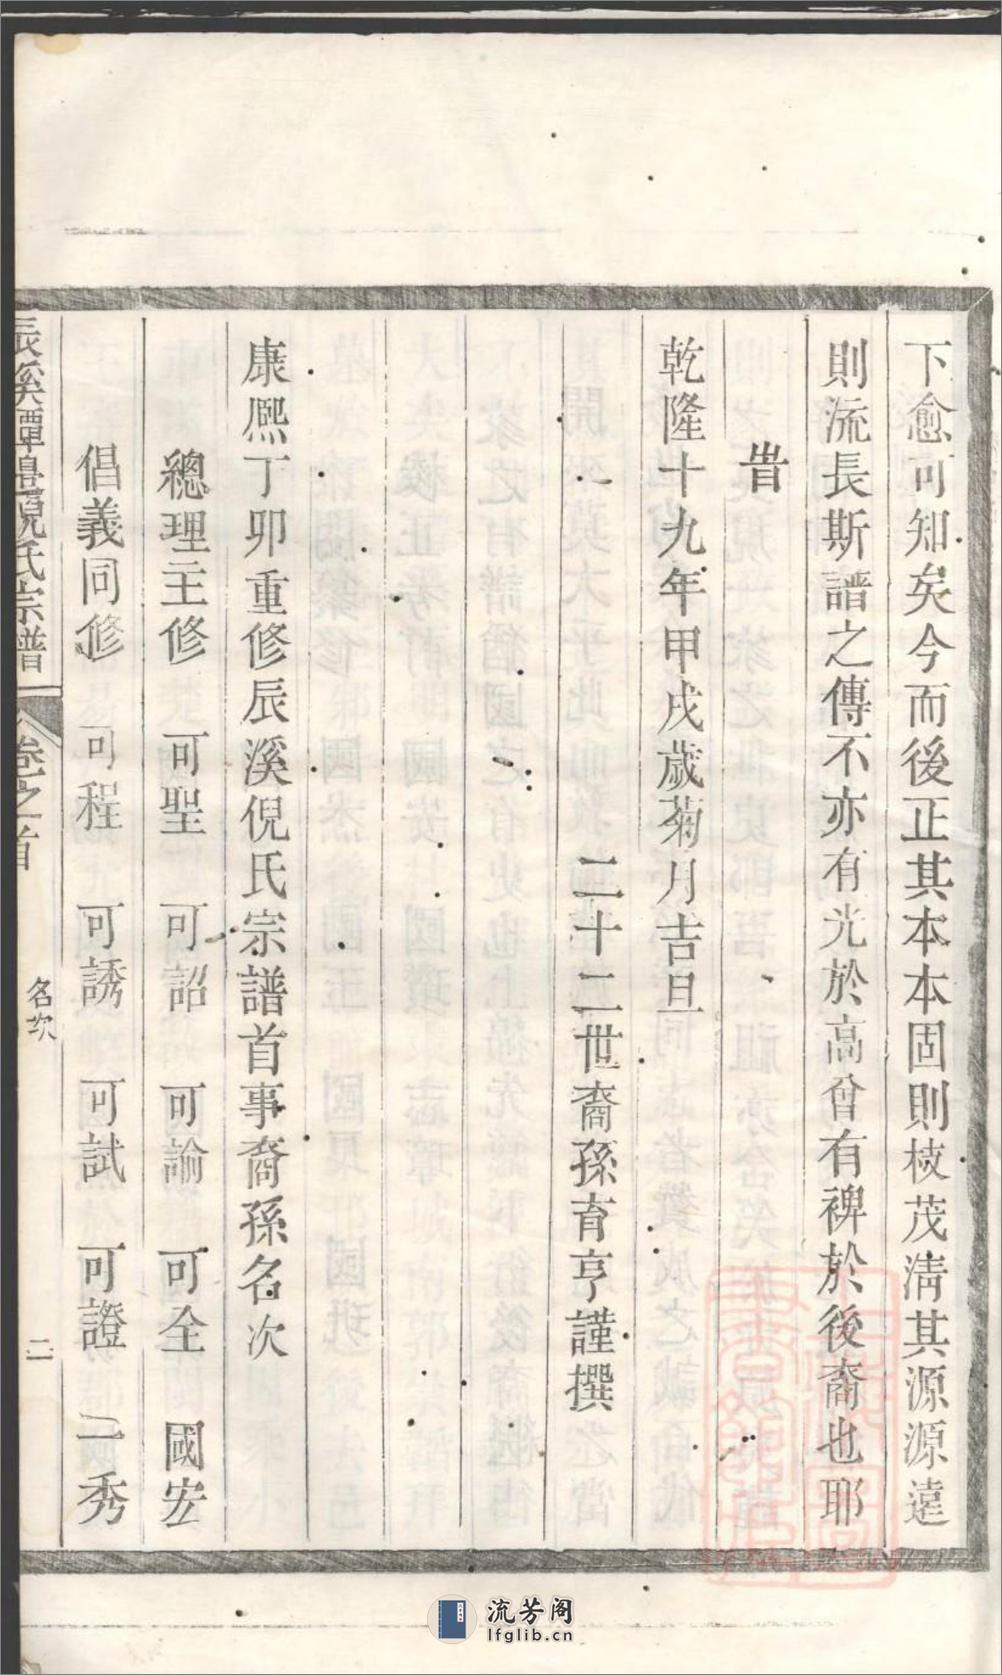 下愈可知矣今而後正其本本固則枝茂淸其源源遠
則流長斯譜之傳不亦有光於高曾有裨於後裔也耶
旹
乾隆十九年甲戌歲菊月吉旦
二十二世裔孫育亨謹撰
康熈丁卯重修辰溪倪氏宗譜首事裔孫名次
總理主修 可聖 可詔 可諭 可全 國安
倡義同修 可程 可誘 可試 可證 二秀
辰溪潭邊倪氏宗譜 卷之首 名次 二
流芳阁
lfglib.cn